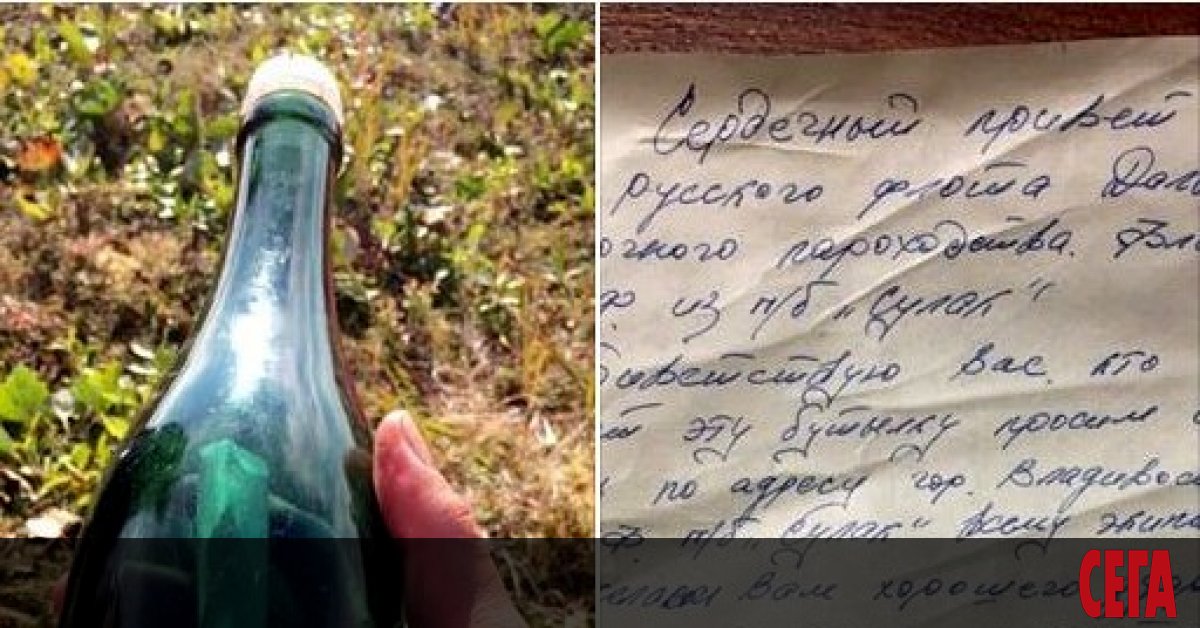 Сердечный привет
русского флота Дал
очного пароходства. Вл
ф. из п/б „Сулак"
риветствую вас, кто
ет эту бутылку просим
по адресу гор. Владивос
ф п/б „Сулак" всему экип
Вам хорошего
СЕГА